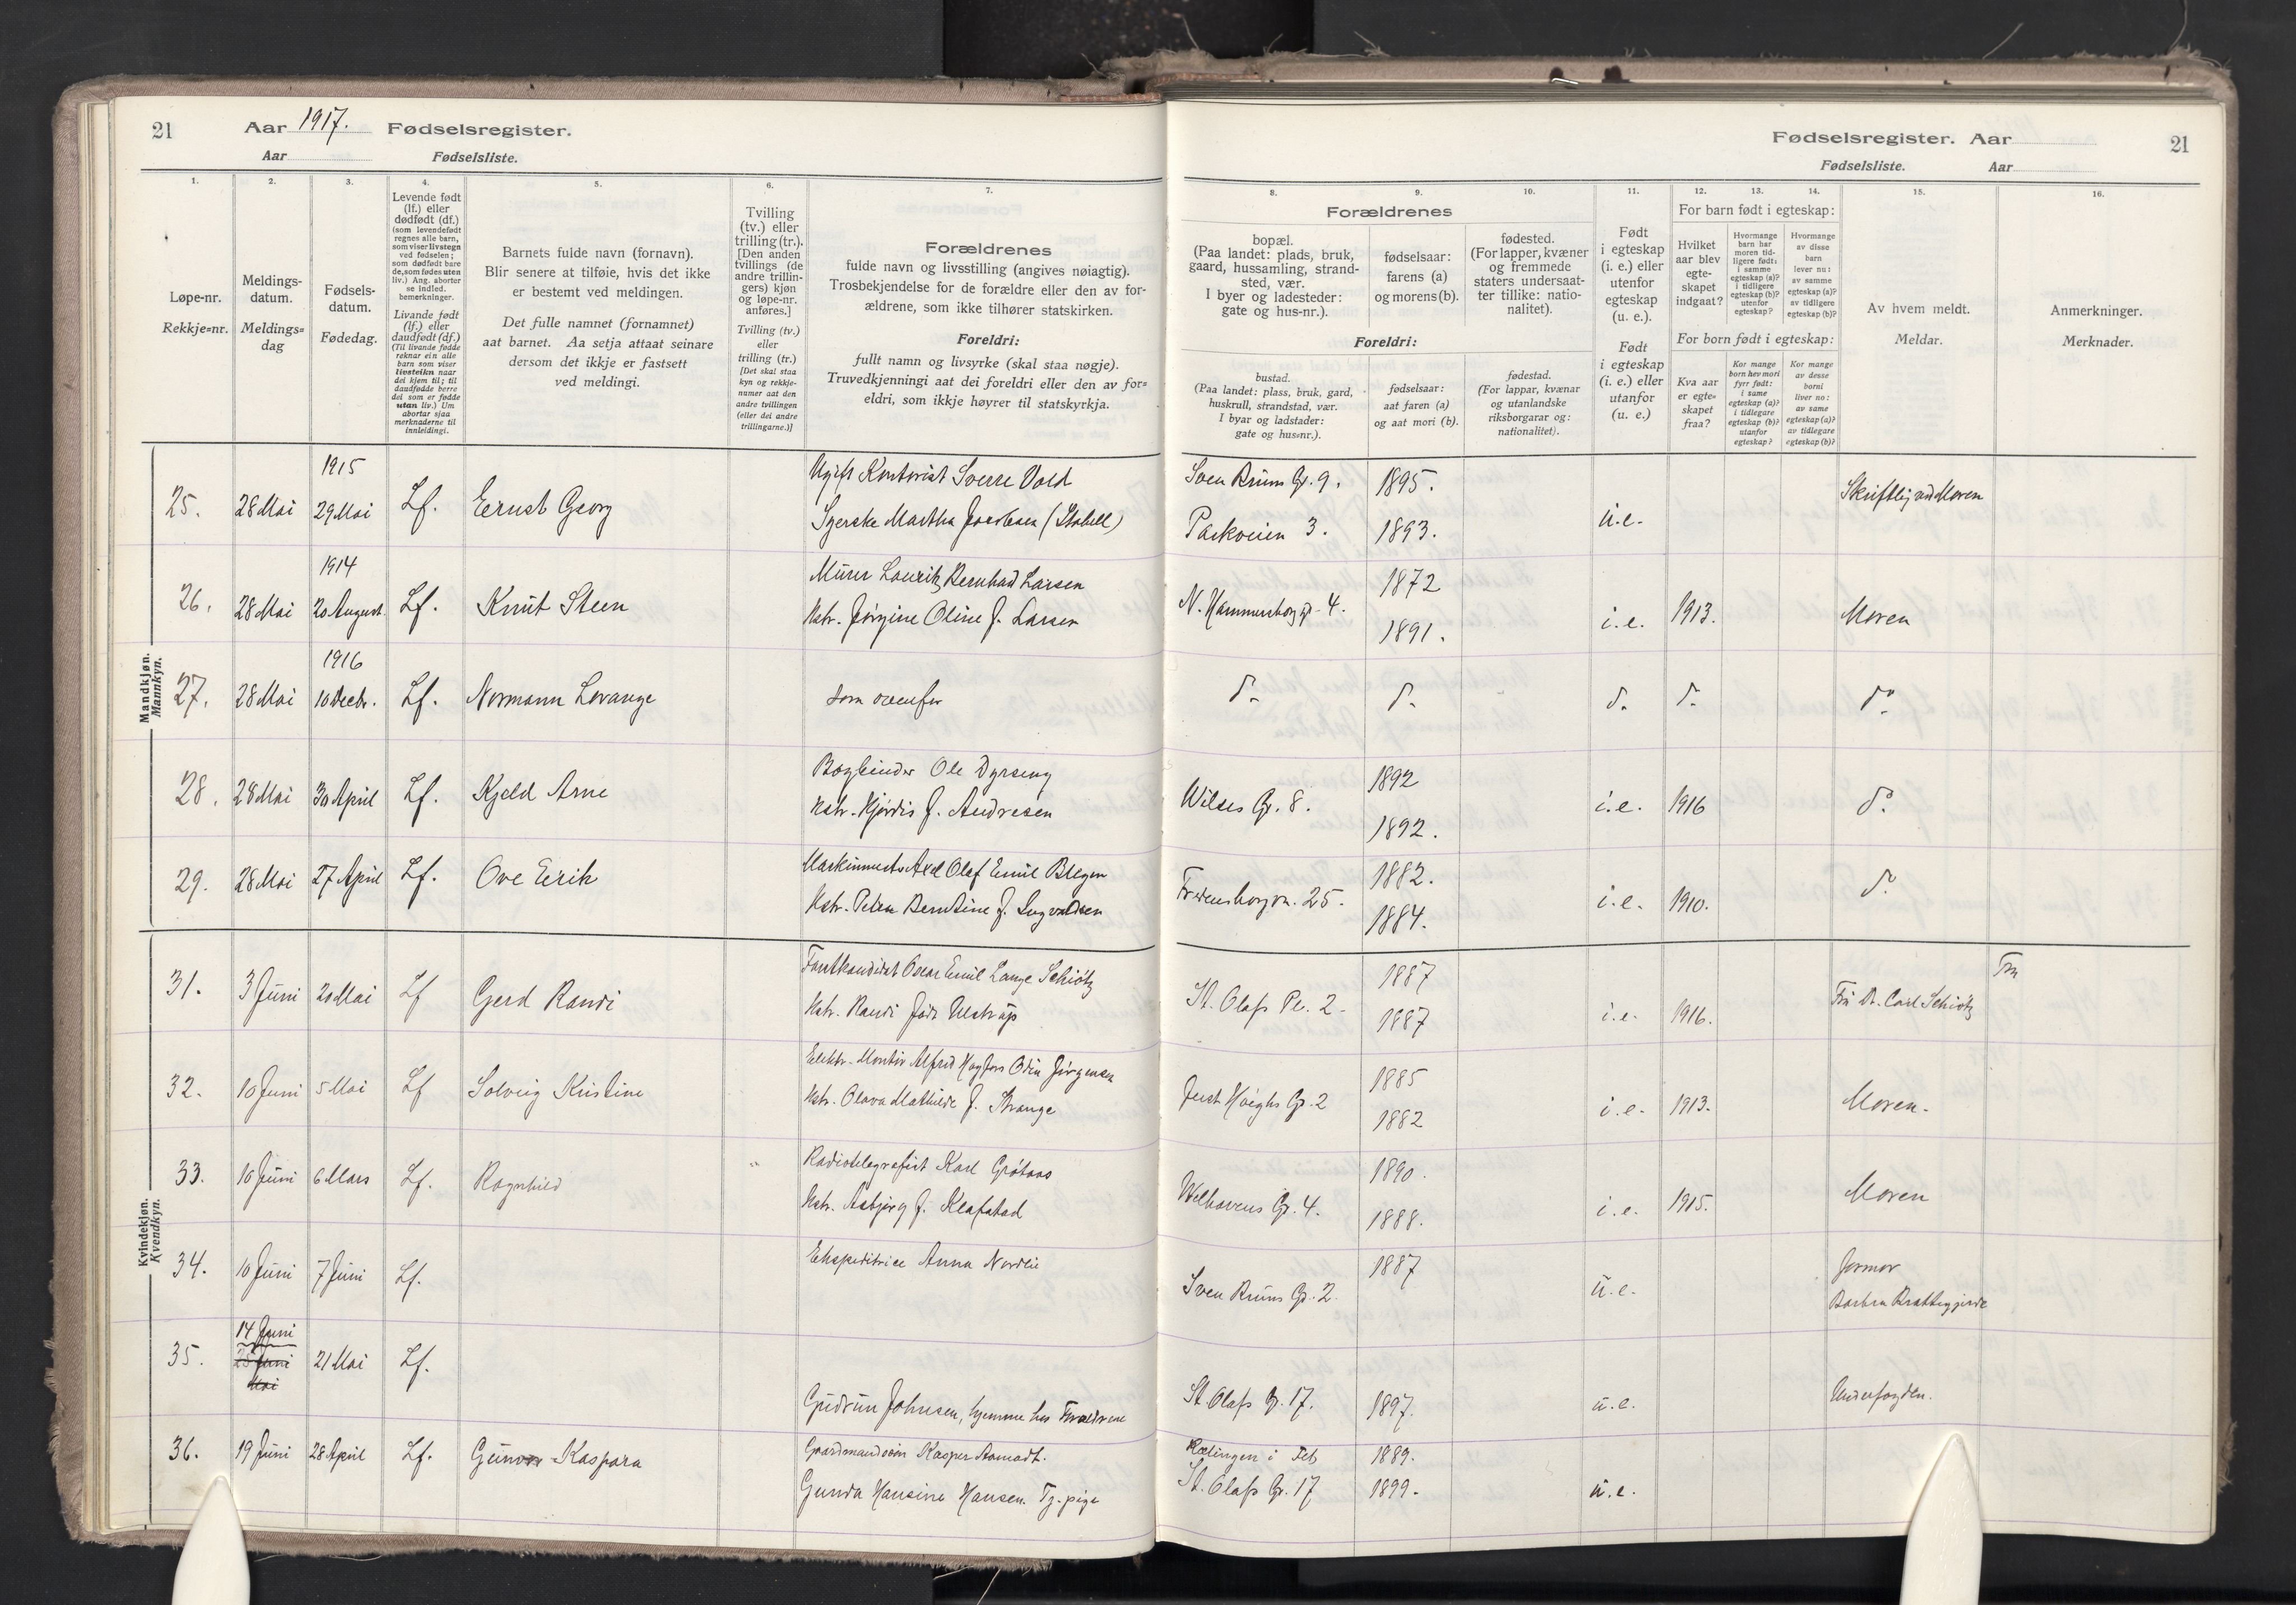 21 Aar 1917. Fødselsregister.
Aar Fødselsliste.
Fødselsregister. Aar 21
Fødselsliste. Aar
1. 2. 3. 4. 5. 6. 7.
Løpe-nr.
Rekkje=nr.
Meldings-
datum.
Meldings=
dag
Fødsels-
datum.
Fødedag.
Levende født
(lf.) eller
dødfødt (df.)
(som levendefødt
regnes alle barn,
som viser livstegn
ved fødselen;
som dødfødt bare
de, som fødes uten
liv.) Ang. aborter
se indled.
bemerkninger.
Livande født
(lf.) eller
daudfødt (df.)
(Til livande fødde
reknar ein alle
barn som viser
livsteikn naar
dei kjem til; til
daudfødde berre
dei som er fødde
utan liv.) Um
abortar sjaa
merknaderne til
innleidingi.
Barnets fulde navn (fornavn).
Blir senere at tilføie, hvis det ikke
er bestemt ved meldingen.
Det fulle namnet (fornamnet)
aat barnet. Aa setja attaat seinare
dersom det ikkje er fastsett
ved meldingi.
Tvilling
(tv.) eller
trilling (tr.).
[Den anden
tvillings (de
andre trillin-
gers) kjøn
og løpe-nr.
anføres.]
Tvilling (tv.)
eller
trilling (tr.)
[Det skal staa
kyn og rekkje-
numer aat den
andre tvillingen
(eller dei andre
trillingarne.)]
Forældrenes
fulde navn og livsstilling (angives nøiagtig).
Trosbekjendelse for de forældre eller den av for-
ældrene, som ikke tilhører statskirken.
Foreldri:
fullt namn og livsyrke (skal staa nøgje).
Truvedkjenningi aat dei foreldri eller den av for=
eldri, som ikkje høyrer til statskyrkja.
8. 9. 10. 11. 12. 13. 14. 15. 16.
Forældrenes
bopæl.
(Paa landet: plads, bruk,
gaard, hussamling, strand-
sted, vær.
I byer og ladesteder:
gate og hus-nr.).
fødselsaar:
farens (a)
og morens (b).
fødested.
(For lapper, kvæner
og fremmede
staters undersaat-
ter tillike: natio-
nalitet).
Foreldri:
bustad.
(Paa landet: plass, bruk, gard,
huskrull, strandstad, vær.
I byar og ladstader:
gate og hus=nr.).
fødselsaar:
aat faren (a)
og aat mori (b).
fødestad.
(For lappar, kvænar
og utanlandske
riksborgarar og:
nationalitet).
Født
i egteskap
(i. e.) eller
utenfor
egteskap
(u. e.).
Født
i egteskap
(i. e.) eller
utanfor
(u. e.)
For barn født i egteskap:
Hvilket
aar blev
egte-
skapet
indgaat?
Hvormange
barn har
moren tid-
ligere født:
i samme
egteskap (a)?
i tidligere
egteskap (b)?
utenfor
egteskap?
Hvormange
av disse
barn
lever nu:
av samme
egteskap (a)?
av tidligere
egteskap (b)?
For born født i egteskap:
Kva aar
er egte=
skapet
fraa?
Kor mange
born hev mori
fyrr født:
i same
egteskap (a)?
i tidlegare
egteskap (b)?
utanfor
egteskap?
Kor mange
av desse
borni
liver no:
av same
egteskap (a)?
av tidlegare
egteskap (b)?
Av hvem meldt.
Meldar.
Anmerkninger.
Merknader.
Mandkjøn.
Mannkyn.
1915
25. 28 Mai 29 Mai Lf. Ernst Georg
Ugift Kontorist Sverre Vold Sven Bruns G. 9. 1895.
Syerske Martha Jacobsen (Stabell) Parkveien 3. 1893. u.e. Skriftlig ved Moren
1914
26. 28 Mai 20 August. Lf. Knut Steen
Murer Lauritz Bernhard Larsen 1872
Hstr. Jørgine Oline f. Larsen N. Hammersborg g. 4. 1891. i.e. 1913. Moren
1916
27. 28 Mai 10 Decbr. Lf. Normann Lorange som ovenfor do. do. do. do. do.
28. 28 Mai 30 April Lf. Kjeld Arne
Bogbinder Ole Dyrseng 1892
Hstr. Hjørdis f. Andresen Wilses G. 8. 1892. i.e. 1916 do.
29. 28 Mai 27 April Lf. Ove Eirik
Maskinmester Axel Olaf Emil Blegen 1882.
Hstr. Petra Berntine f. Ingvaldsen Fredensborgvn. 25. 1884. i.e. 1910. do.
Kvindekjøn.
Kvendkyn.
31. 3 Juni 20 Mai Lf Gerd Randi
Forstkandidat Oscar Emil Lange Schiøtz 1887
Hstr. Randi født Ulstrup St. Olafs Pl. 2. 1887 i.e. 1916. Fru Dr. Carl Schiøtz Fru
32. 10 Juni 5 Mai Lf Solveig Kristine
Elektr. Montør Alfred Hagfors Odin Jörgensen 1885
Hstr. Olava Mathilde f. Strange Just Høighs G. 2 1882 i.e. 1913. Moren.
33. 10 Juni 6 Mars Lf. Ragnhild "
Radiotelegrafist Karl Grøtaas 1890.
Hstr. Asbjørg f. Klafstad Welhavens G. 4. 1888. i.e. 1915. Moren
34. 10 Juni 7 Juni Lf.
Ekspeditrice Anna Nordli Sven Bruns G. 2. 1887 u.e. Jormor
Barbra Brattegjerde
14 Juni
35. 25 Juni 21 Mai Lf.
Mai
Gudrun Johnsen, hjemme hos Forældrene St. Olafs G. 17. 1897. u.e. Underfogden.
36. 19 Juni 28 April Lf. Gunvor Kaspara
Gaardmandssøn Kasper Aamodt. Rælingen i Fet 1889.
Gunda Hansine Hansen. Tj. pige St. Olafs G. 17 1899. u.e.